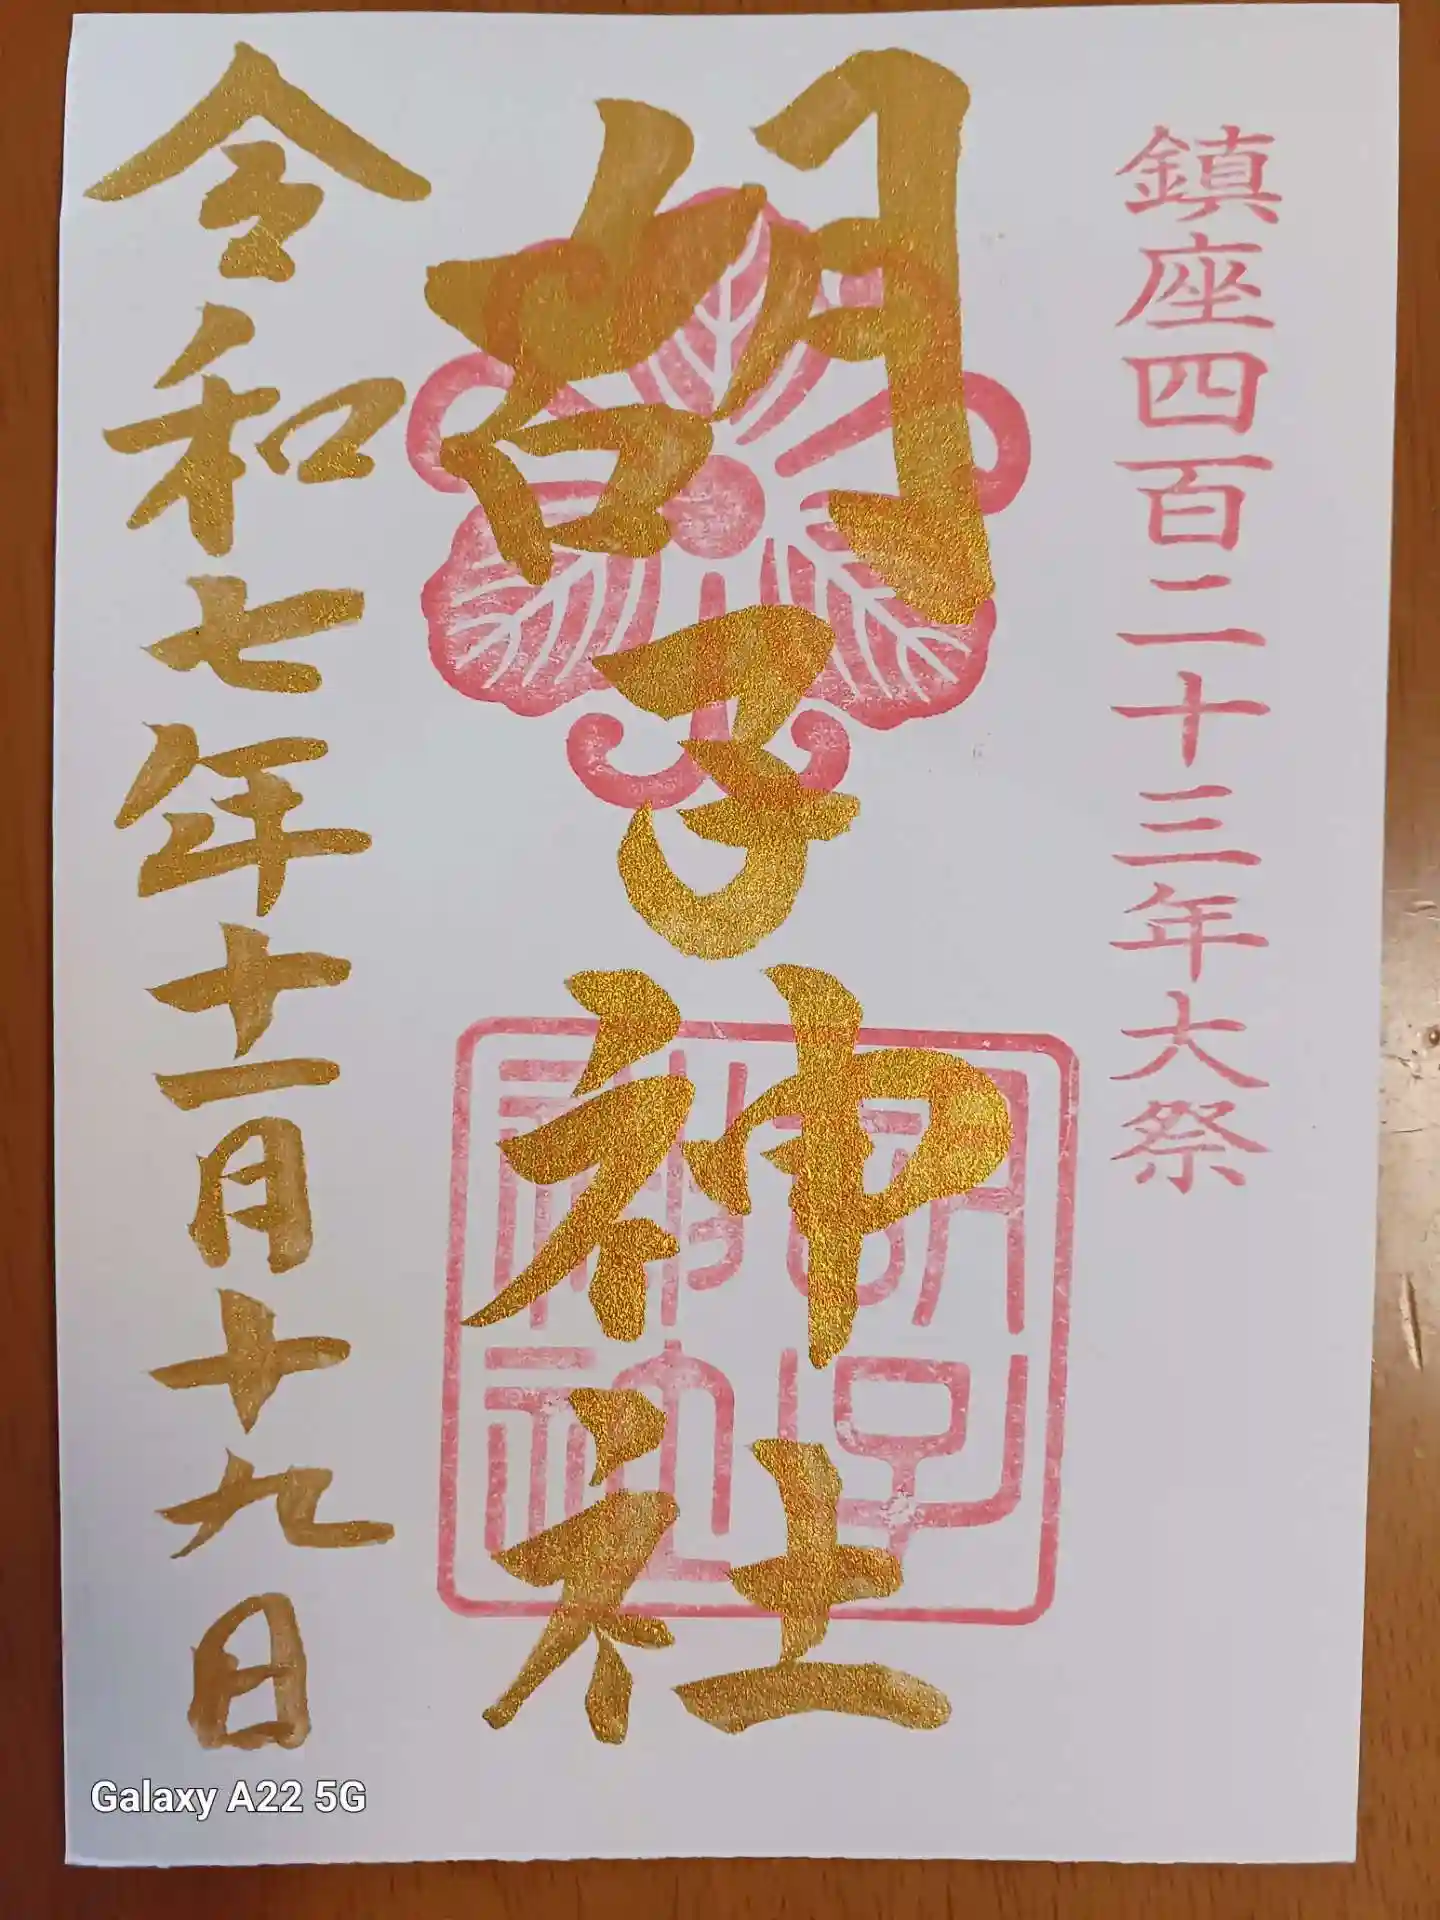 鎮座四百二十三年大祭
胡子神社
胡子
神社
令和七年十一月十九日
Galaxy A22 5G